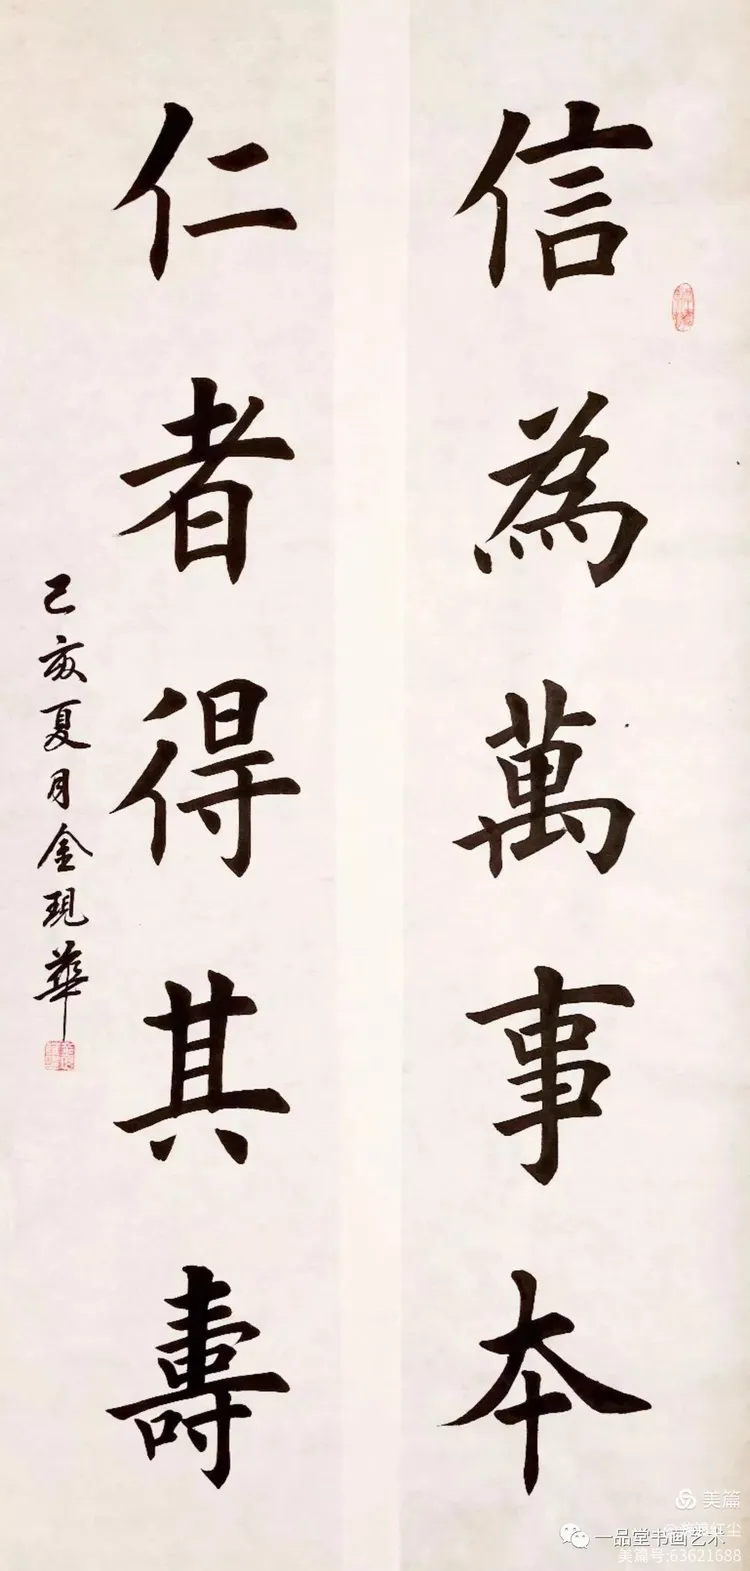 信為萬事本
仁者得其壽
己亥夏月金現華
美篇
一品堂书画艺术
美篇号:63621688